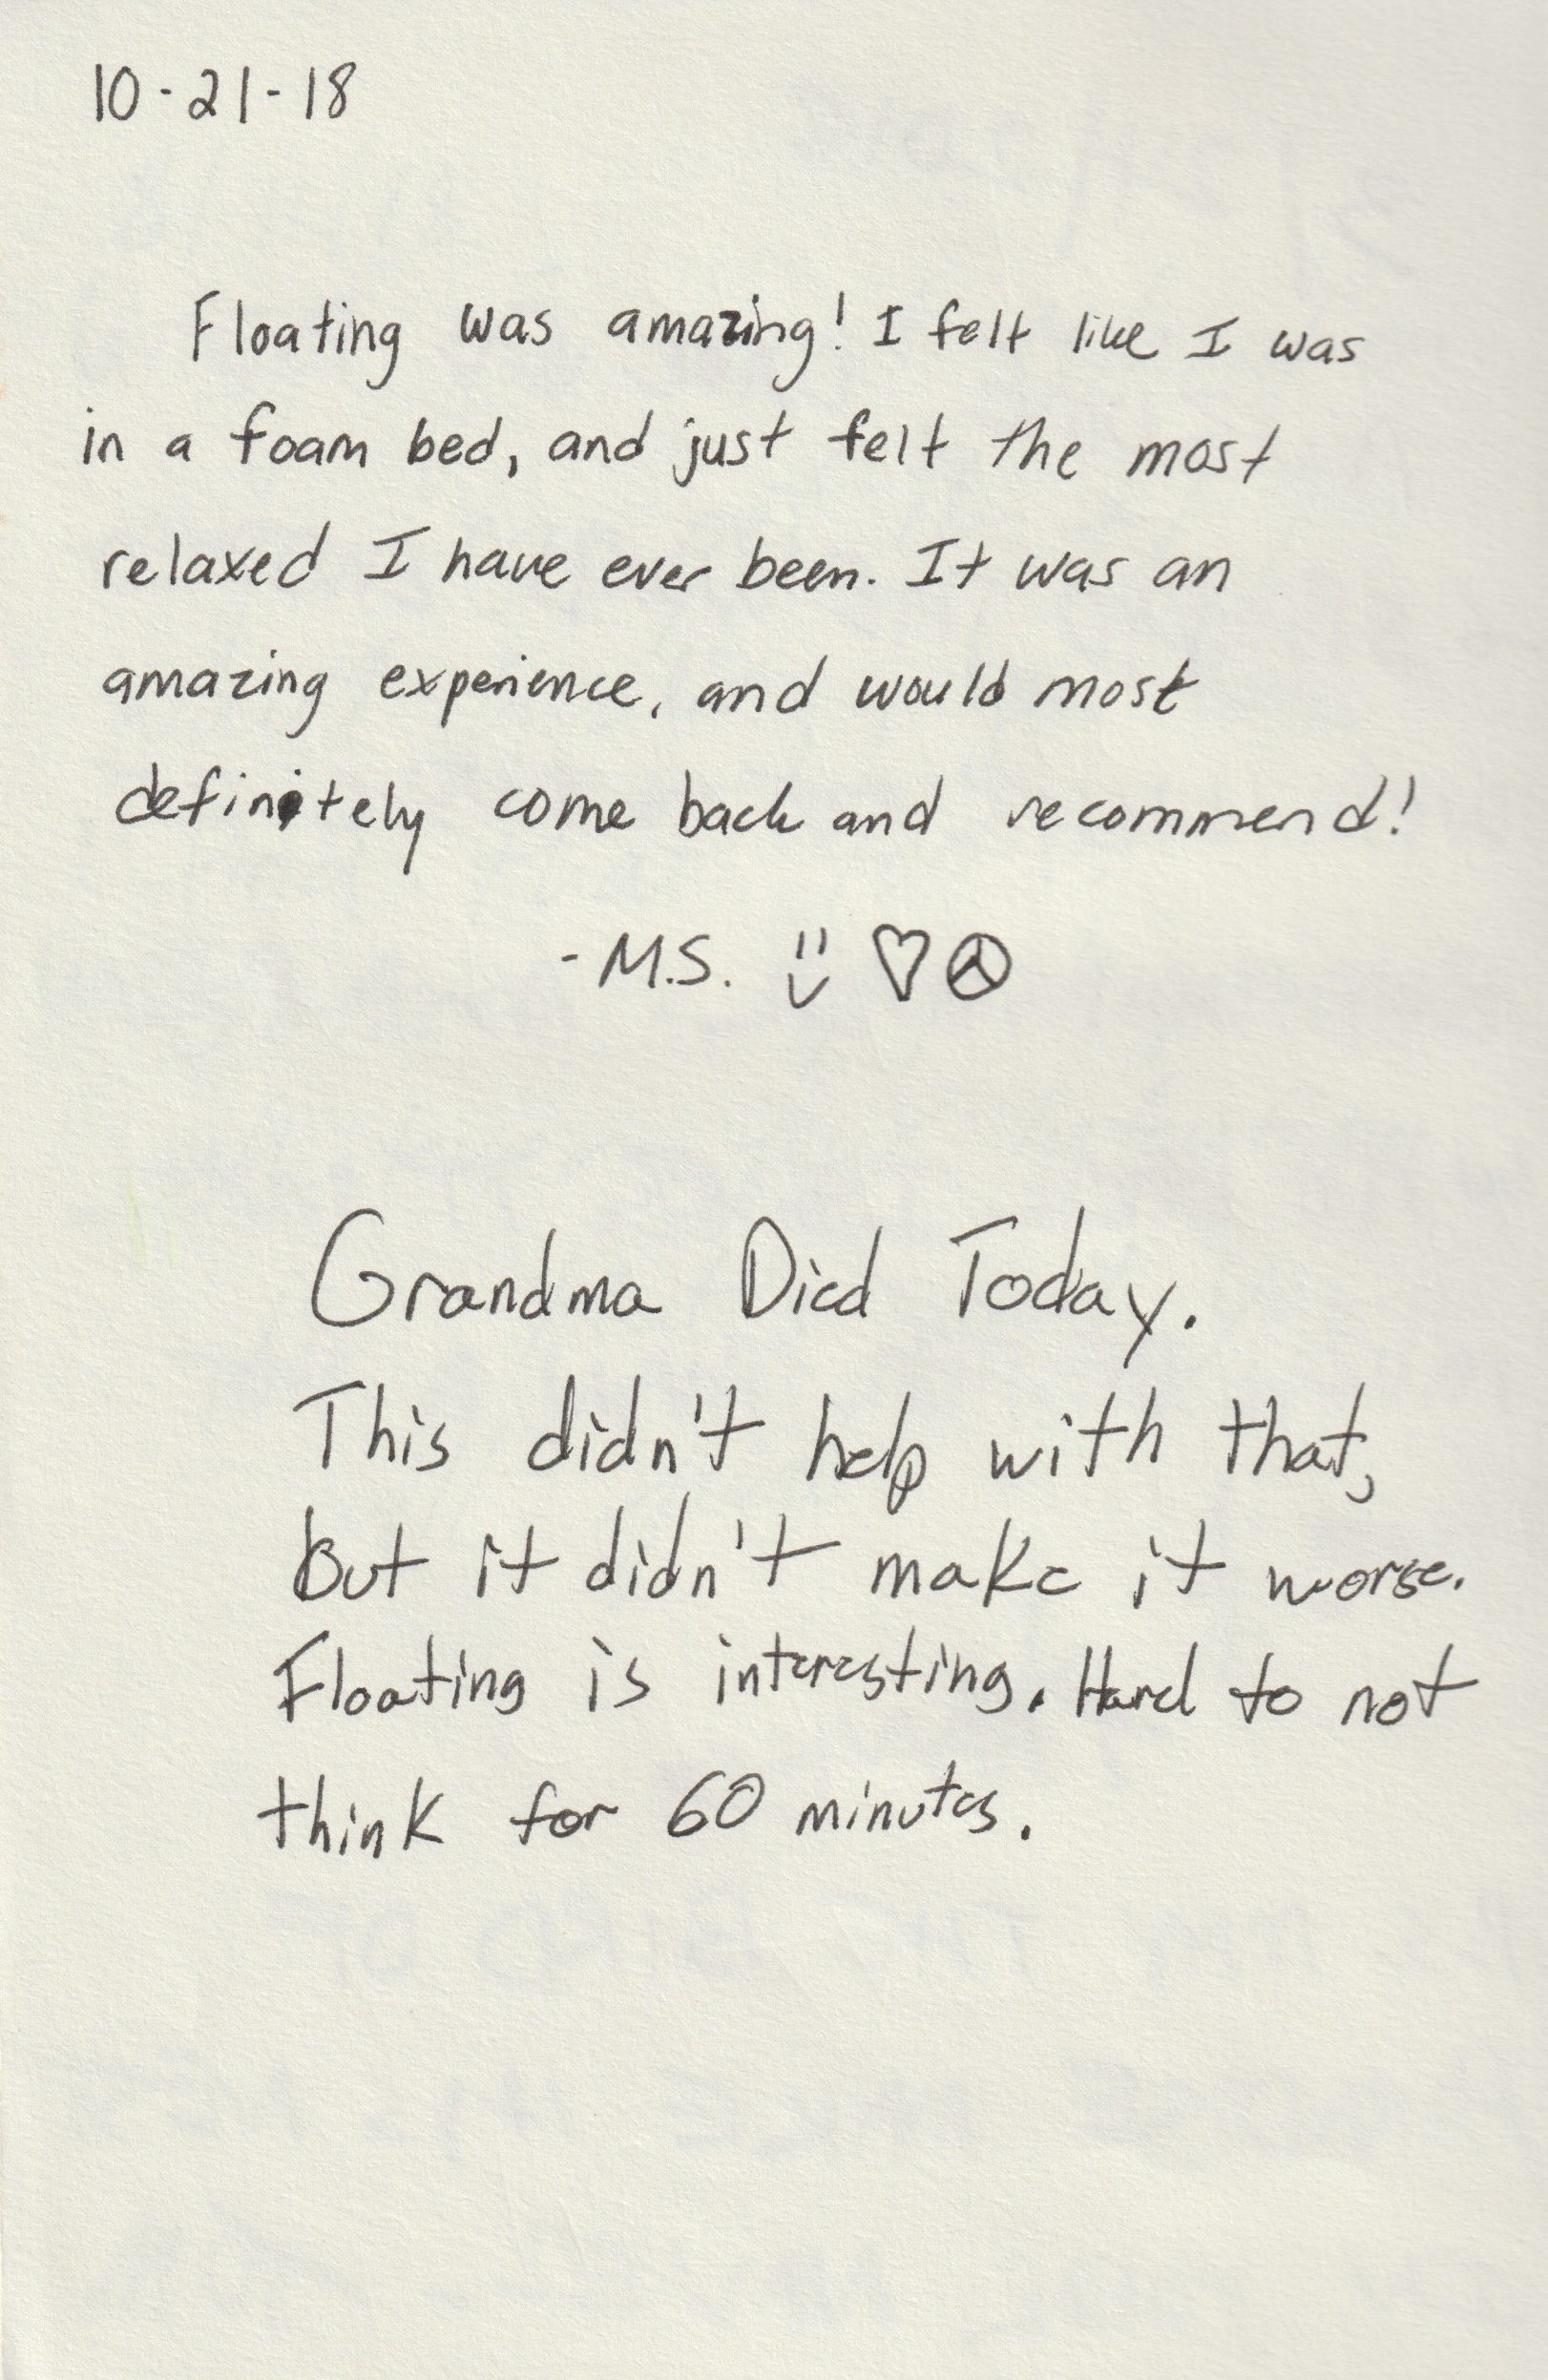 10-21-18
Floating was amazing! I felt like I was
in a foam bed, and just felt the most
relaxed I have ever been. It was an
amazing experience, and would most
definitely come back and recommend!
-M.S.
Grandma Died Today.
This didn't help with that,
But it didn't make it worse.
Floating is interesting. Hard to not
think for 60 minutes.